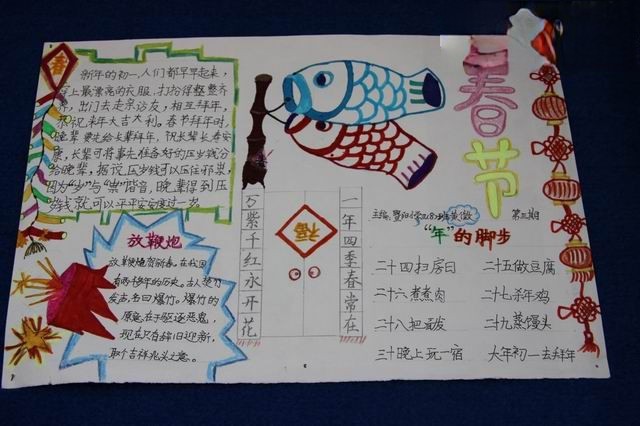 春
新年的初一,人们都早早起来,
穿上最漂亮的衣服,打扮得整整齐
齐,出门去走亲访友,相互拜年,
恭祝来年大吉大利。春节拜年时,
晚辈要先给长辈拜年,祝长辈长寿安
康,长辈可将事先准备好的压岁钱分
给晚辈,据说压岁钱可以压住邪祟,
因为“岁”与“祟”谐音,晚辈得到压
岁钱就可以平平安安度过一岁。
放鞭炮
放鞭炮贺新春,在我国
有两千多年的历史。
爆竹的
原意在于驱逐恶鬼,
现在只有辞旧迎新,
取个吉祥兆头之意。
万紫千红永开花
福
一年四季春常在
春节
第三期
“年”的脚步
二十四扫房日
二十五做豆腐
二十六煮煮肉
二十七杀年鸡
二十八把面发
二十九蒸馒头
三十晚上玩一宿
大年初一去拜年